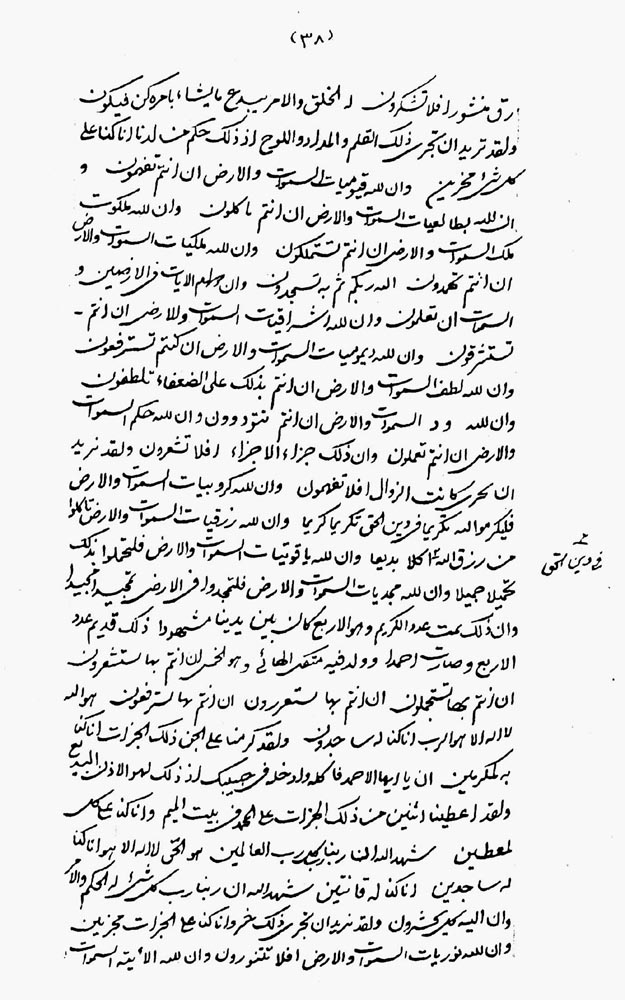 (٣٨)
رق منشور افلا تشكرون له الخلق والامر يبدع ما يشاء بامره كن فيكون
ولقد نريد ان نجرى ذلك القلم والمداد واللوح اذ ذلك حكم من لدنا اناكنا على
كل شئ مخبرين وان لله قيوميات السموات والارض ان انتم تفهمون و
ان لله السموات والارض ان انتم تاكلون وان لله ملكوت
ملك السموات والارض ان انتم تستملكون وان لله ملكيات السموات والارض
ان انتم تمهدون الله ربكم ثم به تسجدون وان الايات فى الارضين و
السموات ان تعلمون وان لله اشراقيات السموات والارض ان انتم
تستشرقون وان لله ديموميات السموات والارض ان كنتم تسترفعون
وان لله لطف السموات والارض ان انتم بذلك على الضعفاء تلطفون
وان لله ود السموات والارض ان انتم تتوددون وان لله حكم السموات
والارض ان انتم تعملون وان ذلك جزاء الاجزاء افلا تشعرون ولقد نريد
ان نجرى الزوال افلا تفهمون وان لله كروبيات السموات والارض
فليكرموا الله تكريما فروين الحق تكريما كريما وان لله رزقيات السموات والارض تاكلوا
من رزق الله اكلا بديعا وان لله ياقوتيات السموات والارض فلتجملوا بذلك
تجميلا جميلا وان لله مجديات السموات والارض فلتمجدوا فى الارض تمجيدا مجيدا
وان ذلك عدد الكريم وهو الاربع كان بين يدينا مشهودا ذلك قديم عدد
الاربع وصارت احمدا وولد فيه الهائى وهو الخمس ان انتم بها تستشعرون
ان انتم بها تستجملون ان انتم بها ان انتم بها تسترفعون هو الله
لا اله الا هو الرب اناكنا له ساجدون ولقد كرمنا على الحق ذلك الجزات اناكنا
به لمكرمين ان يا ايها الاحمد فاكله وادخله فى جيبك اذ ذلك لهو الاذن البديع
ولقد اعطينا اثنين من ذلك الجزات على المحمد فى بيت الميم واناكنا على كل
لمعطين شهد الله ان ربنا رب العالمين هو الحى لا اله الا هو اناكنا
له ساجدين اناكنا له قانتين شهد الله ان ربنا رب كل شئ له الحكم والامر
وان اليه كل يحشرون ولقد نريد ان نجرى ذلك خر واناكنا على الجزات مجزين
وان لله نوريات السموات والارض افلا تتنورون وان لله السموات